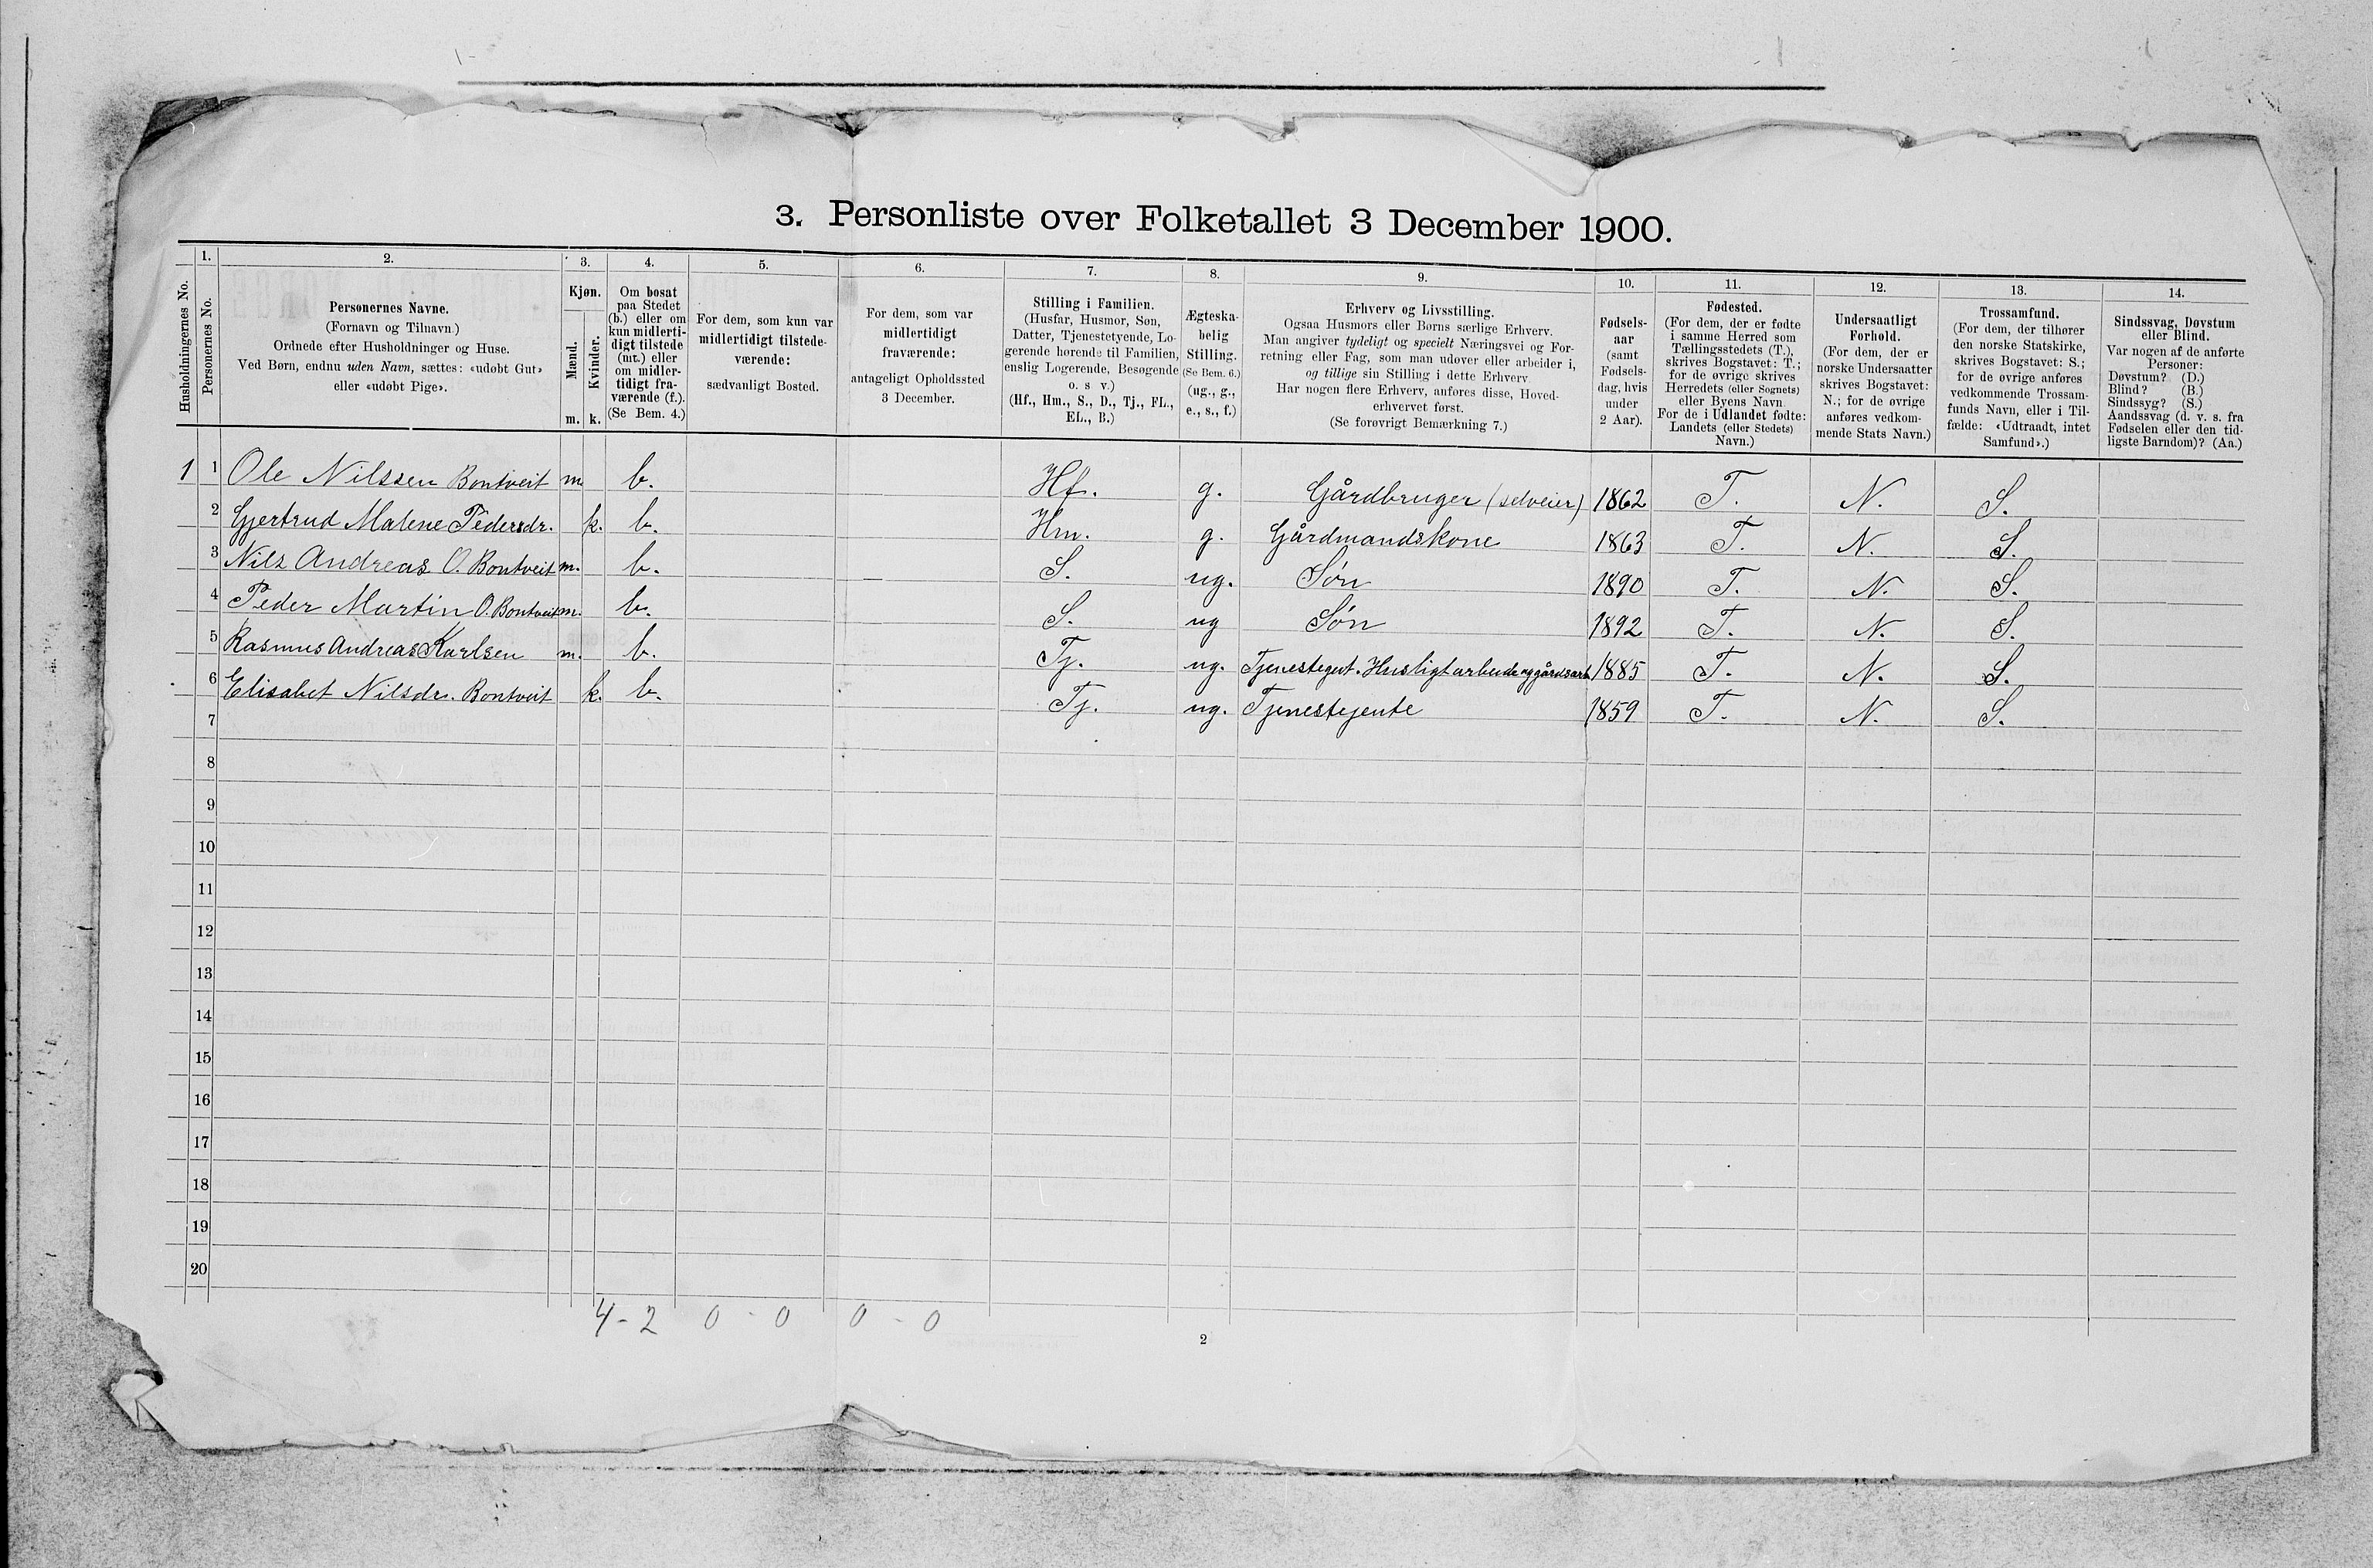 3. Personliste over Folketallet 3 December 1900.
1. 2. 3. 4. 5. 6. 7. 8. 9. 10. 11. 12. 13. 14.
Husholdningernes No.
Personernes No.
Personernes Navne.
(Fornavn og Tilnavn)
Ordnede efter Husholdninger og Huse.
Ved Børn, endnu uden Navn, sættes: «udøbt Gut»
eller «udøbt Pige».
Kjøn.
Mænd.
Kvinder.
m. k.
Om bosat
paa Stedet
(b.) eller om
kun midlerti-
digt tilstede
(mt.) eller
om midler-
tidigt fra-
værende (f.).
(Se Bem. 4.)
For dem, som kun var
midlertidigt tilstede-
værende:
sædvanligt Bosted.
For dem, som var
midlertidigt
fraværende:
antageligt Opholdssted
3 December.
Stilling i Familien.
(Husfar, Husmor, Søn,
Datter, Tjenestetyende, Lo-
gerende hørende til Familien,
enslig Logerende, Besøgende
o. s v.)
(Hf., Hm., S., D., Tj., FL.,
EL., B.)
Ægteska-
belig
Stilling.
(Se Bem. 6.)
(ug., g.,
e., s., f.)
Erhverv og Livsstilling.
Ogsaa Husmors eller Børns særlige Erhverv.
Man angiver tydeligt og specielt Næringsvei og For-
retning eller Fag, som man udover eller arbeider i,
og tillige sin Stilling i dette Erhverv
Har nogen flere Erhverv, anføres disse, Hoved-
erhvervet først.
(Se forøvrigt Bemærkning 7.)
Fødsels-
aar
(samt
Fødsels-
dag, hvis
under
2 Aar).
Fødested.
(For dem, der er fødte
i samme Herred som
Tællingsstedets (T.),
skrives Bogstavet: T.;
for de øvrige skrives
Herredets (eller Sognets)
eller Byens Navn
For de i Udlandet fødte:
Landets (eller Stedets)
Navn.)
Undersaatligt
Forhold.
(For dem, der er
norske Undersaatter
skrives Bogstavet:
N.; for de øvrige
anføres vedkom-
mende Stats Navn.)
Trossamfund.
(For dem, der tilhører
den norske Statskirke,
skrives Bogstavet: S.;
for de øvrige anføres
vedkommende Trossam-
funds Navn, eller i Til-
fælde: «Udtraadt, intet
Samfund».)
Sindssvag, Døvstum
eller Blind.
Var nogen af de anførte
Personer:
Døvstum? (D.)
Blind? (B.)
Sindssyg? (S.)
Aandssvag (d. v. s. fra
Fødselen eller den tid-
ligste Barndom)? (Aa.)
1 1 Ole Nilssen Bontveit m b. Hf. g. Gårdbruger (selveier) 1862 T. N. S.
2 Gjertrud Malene Pedersdr. k. b. Hm. g. Gårdmandskone 1863 T. N. S.
3 Nils Andreas O. Bontveit m. b. S. ug. Søn 1890 T. N. S.
4 Peder Martin O. Bontveit m. b. S. ug Søn 1892 T. N. S.
5 Rasmus Andreas Karlsen m. b. Tj. ug. Tjenestegut. Husligtarbeide og gårdsarb 1885 T. N. S.
6 Elisabet Nilsdr. Bontveit k. b. Tj. ug. Tjenestejente 1859 T. N. S.
7
8
9
10
11
12
13
14
15
16
17
18
19
20
4 - 2 0 - 0 0 - 0
2